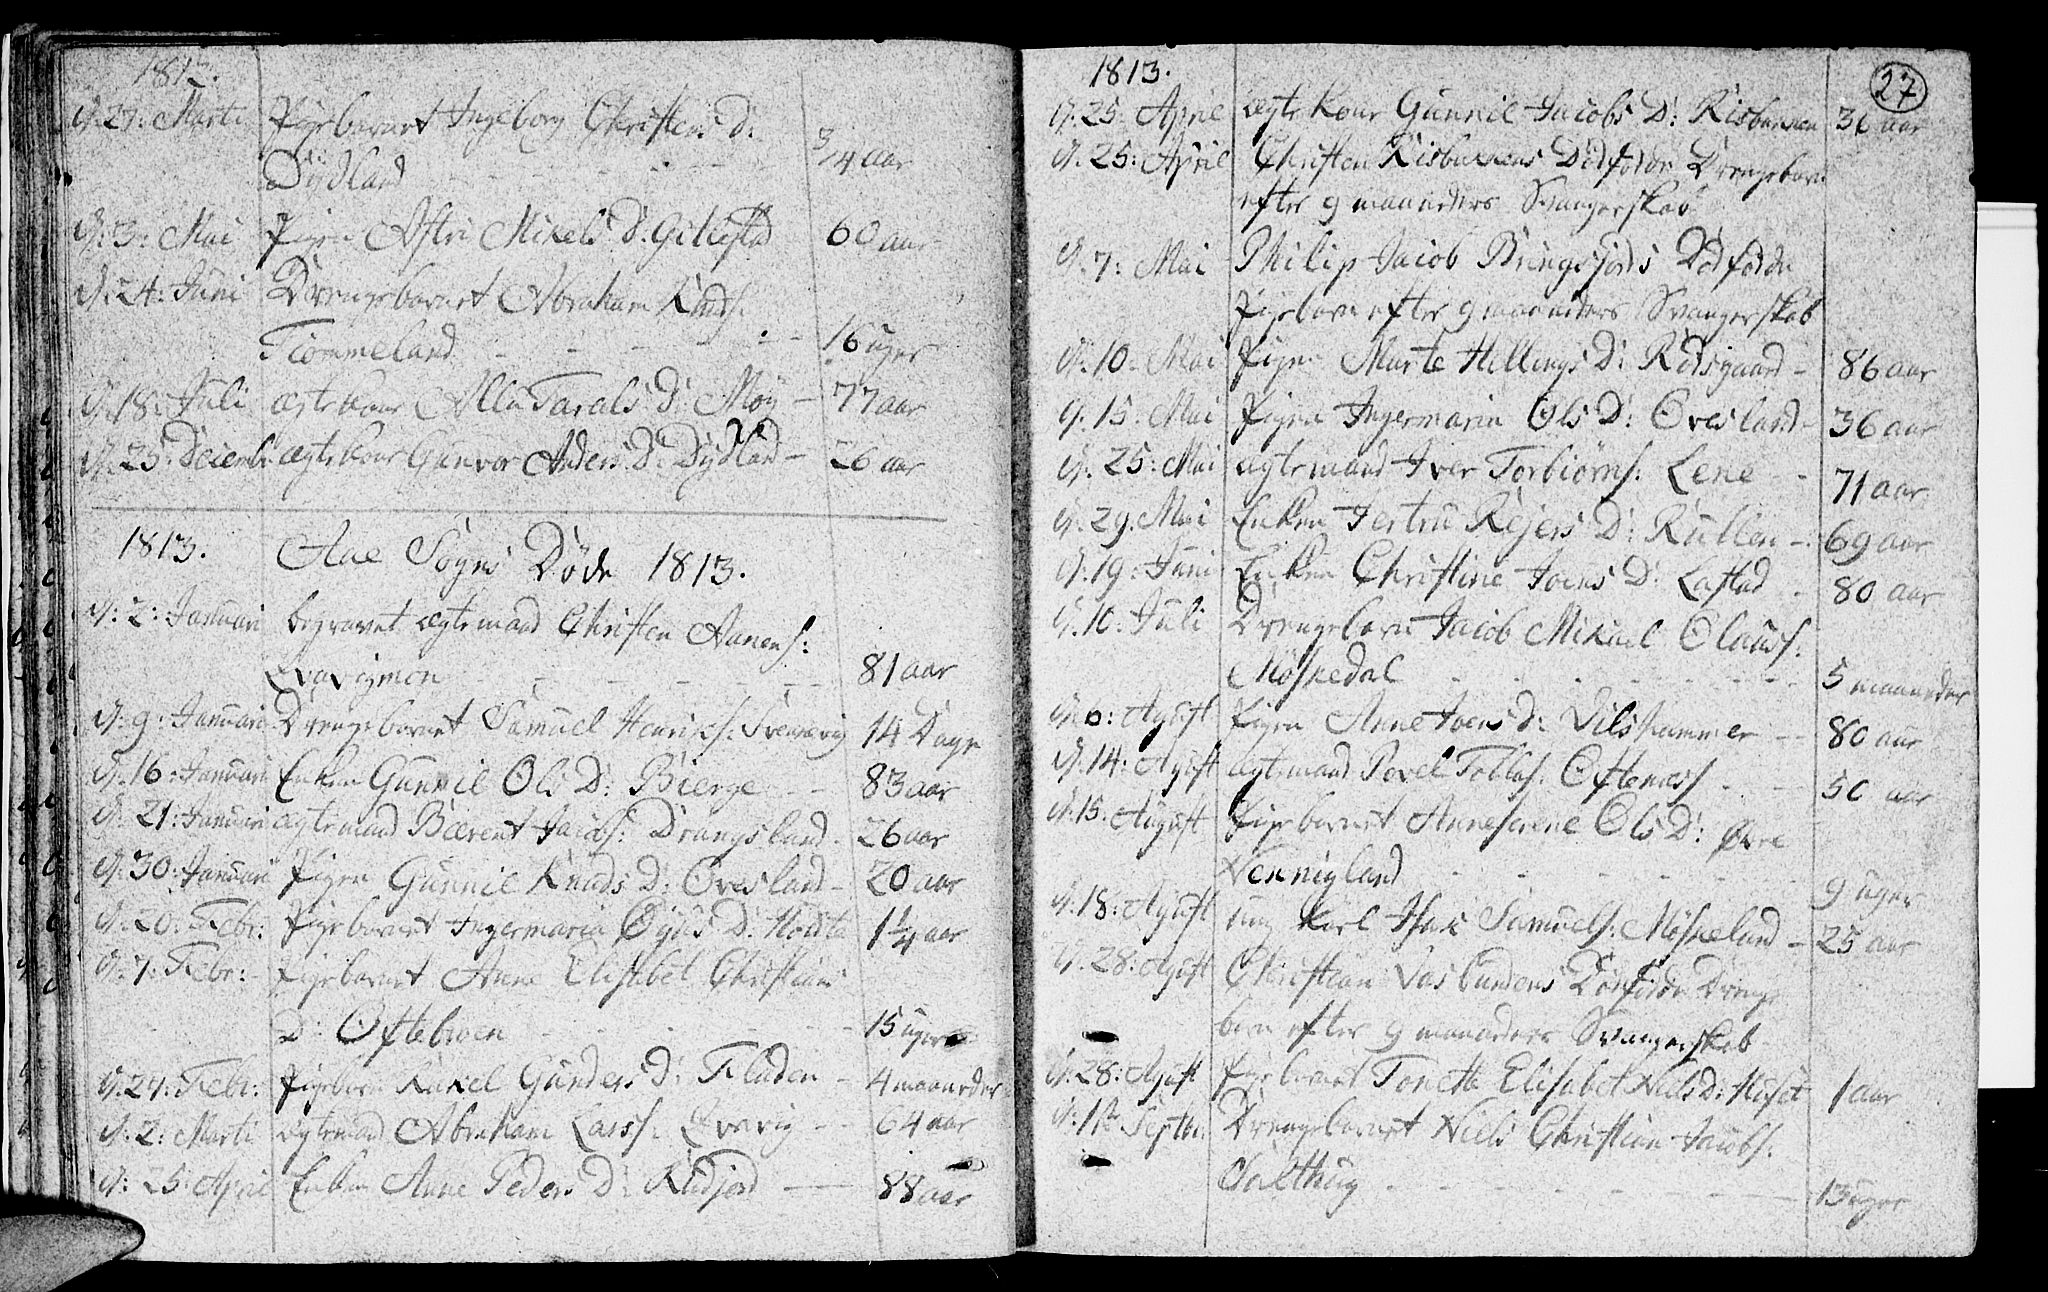 1812.
d: 27: Marti Pigebarnet Ingeborg Christens D:
Dydland - - - 3/4 aar
d: 3: Mai Pigen Assri Mikels D: Gitlestad 60 aar
d: 24: Juni Drengebarnet Abraham Knuds:
Tiommeland - - - 16 uger
d: 18: Juli ægtekone Alle Tarals D: Møy - 77 aar
d: 25: ægtekone Gunvor Anders D: Dydland - 26 aar
1813. Aae Sogns Døde 1813.
d: 2: Januari begravet ægtemand Christen Aanens:
- - - 81 aar
d: 9: Januari Drengebarnet Samuel Henrichs: Svennevig 14 Dage
d: 16: Januari Enken Gunnil Ols D: Bierge - - 83 aar
d: 21: Januari ægtemand Bærent Jacobs: Drangsland - 26 aar
d: 30: Januari Pigen Gunnil Knuds D: Øvesland - 20 aar
d: 20: Febr: Pigebarnet Ingermaria D: 1 1/4 aar
d: 7: Febr: Pigebarnet Anne Elisabet Christians
D: Øftebroen - - - 15 uger
d: 27: Febr: Pigebarn Rakel Gunders D: Fladen - 4 maaneder
d: 2: Marti ægtemand Abraham Larss: Qvavig - - 64 aar
d: 25: April Enken Anne Peders D: - 88 aar
27
1813.
d: 25: April ægtekone Gunnil Jacobs D: Risbakken 36 aar
d: 25: April Christen Risbakkens Dødfødde Drengebarn
efter 9 maaneders Svangerskab
d: 7: Mai Philip Jacob Bringsjords Dødfødde
Pigebarn efter 9 maaneders Svangerskab
d: 10: Mai Pigen Marte Hellings D: Rødsgaard - 86 aar
d: 15: Mai Pigen Ingermaria Ols D: Øvesland - 36 aar
d: 25: Mai ægtemand Iver Torbiørns: Lene - - 71 aar
d: 29. Mai Enken Jertru Rejers D: Kullen - 69 aar
d: 19: Juni Enken Christine Joens D: Lastad - 80 aar
d: 10: Juli Drengebarn Jacob Mikael Olaus:
Møskedal - - - 5 maaneder
d: 6: Agust Pigen Anne Joens D: Vilshammer - - 80 aar
d: 14: Agust ægtemand Povel Tollas: Øftenæss - - 50 aar
d: 15. August Pigebarnet Anneserene Ols D: Øvre
Vennigland - - - 9 uger
d: 18: Agust ung Karl Isak Samuels: Møskeland - 25 aar
d: 28: Agust Christian Dødfødde Drenge
barn efter 9 maaneders Svangerskab
d: 28: Agust Pigebarnet Tonette Elisabet Niels D: Huset 1 aar
Septbr Drengebarnet Niels Christian Jacobs:
Salthug - - - 13 uger